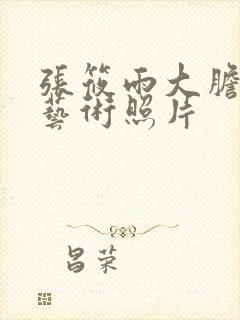 張筱雨大膽
藝術照片
昌荣